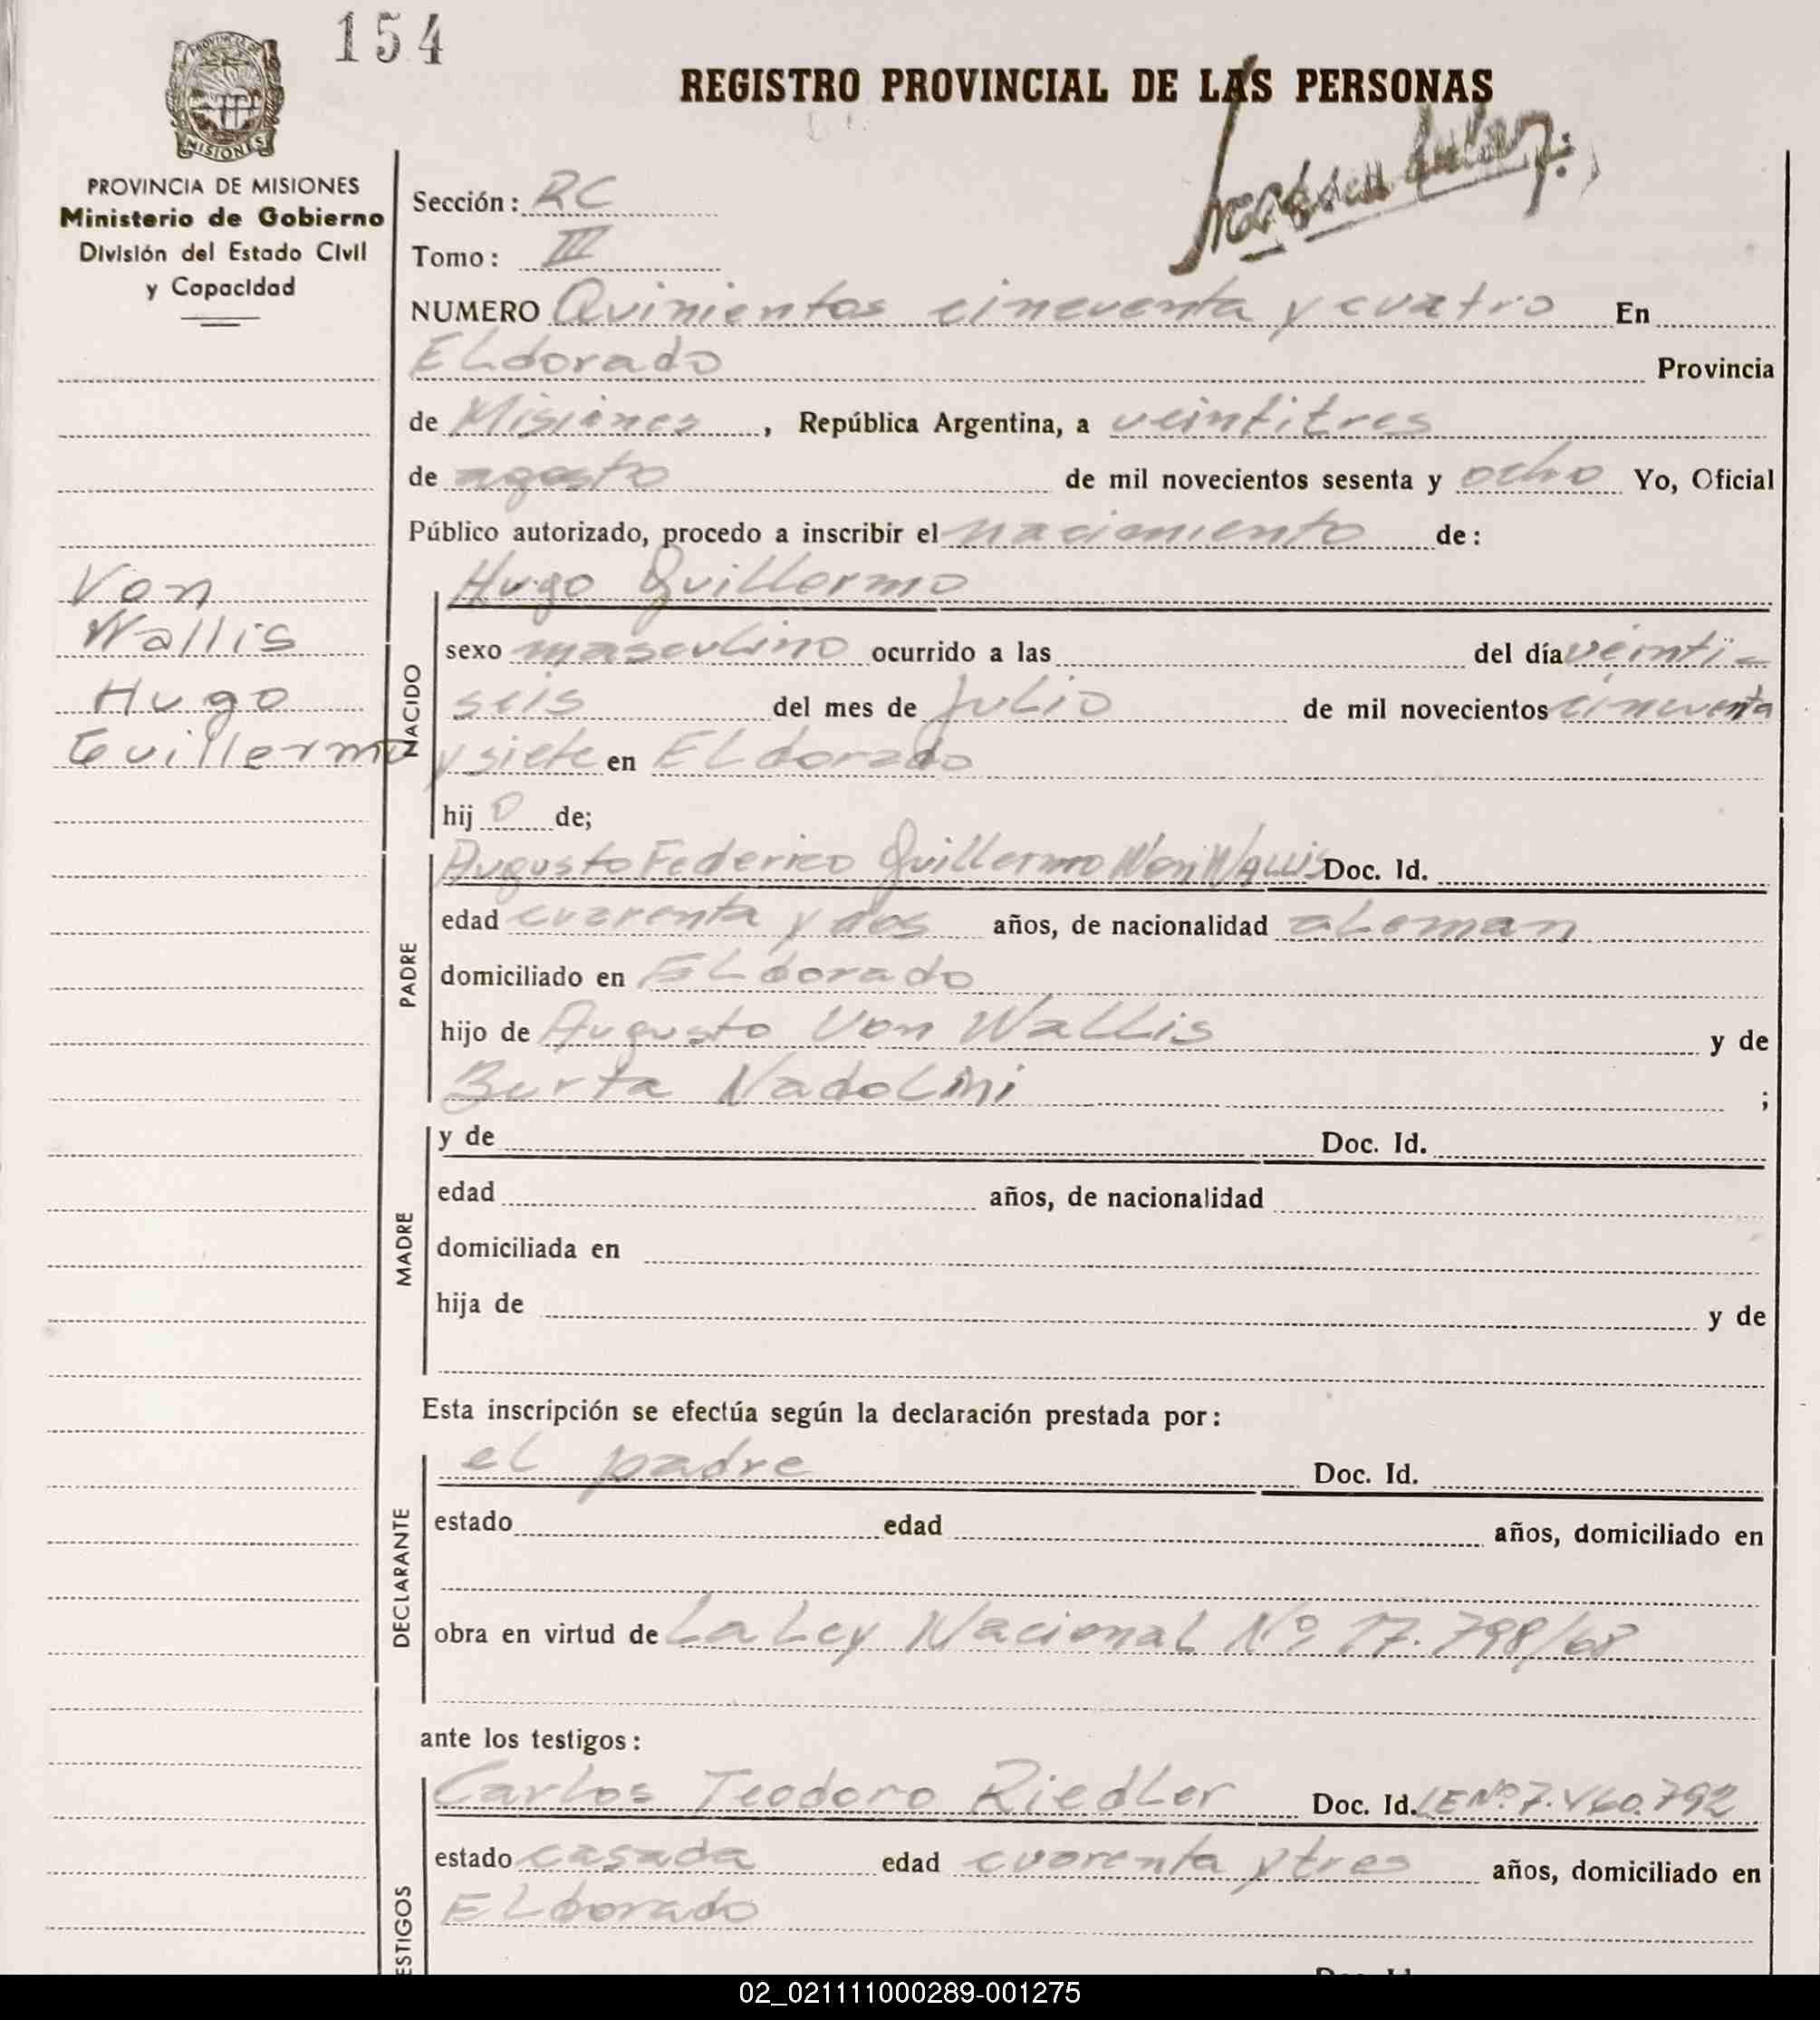 154
REGISTRO PROVINCIAL DE LAS PERSONAS
PROVINCIA DE
MISIONES
PROVINCIA DE MISIONES
Ministerio de Gobierno
División del Estado Civil
y Capacidad
Sección: RC
Tomo: III
NUMERO Quinientos cincuenta y cuatro En
ELdorado Provincia
de Misiones, República Argentina, a veintitres
de agosto de mil novecientos sesenta y ocho Yo, Oficial
Público autorizado, procedo a inscribir el nacimiento de:
Von
Wallis
Hugo
Guillermo
NACIDO
Hugo Guillermo
sexo masculino ocurrido a las del día veinti-
seis del mes de Julio de mil novecientos cincuenta
y siete en ELdorado
hijo de;
PADRE
Augusto Federico Guillermo Von Wallis Doc. Id.
edad cuarenta y dos años, de nacionalidad aLeman
domiciliado en ELdorado
hijo de Augusto Von WaLLis y de
Berta ;
MADRE
y de Doc. Id.
edad años, de nacionalidad
domiciliada en
hija de y de
Esta inscripción se efectúa según la declaración prestada por:
DECLARANTE
eL padre Doc. Id.
estado edad años, domiciliado en
obra en virtud de La Ley NacionaL Nº 17.798/68
ante los testigos:
ESTIGOS
Carlos Teodoro RiedLer Doc. Id. LE Nº 7.460.792
estado casada edad cuarenta y tres años, domiciliado en
ELdorado
02_021111000289-001275